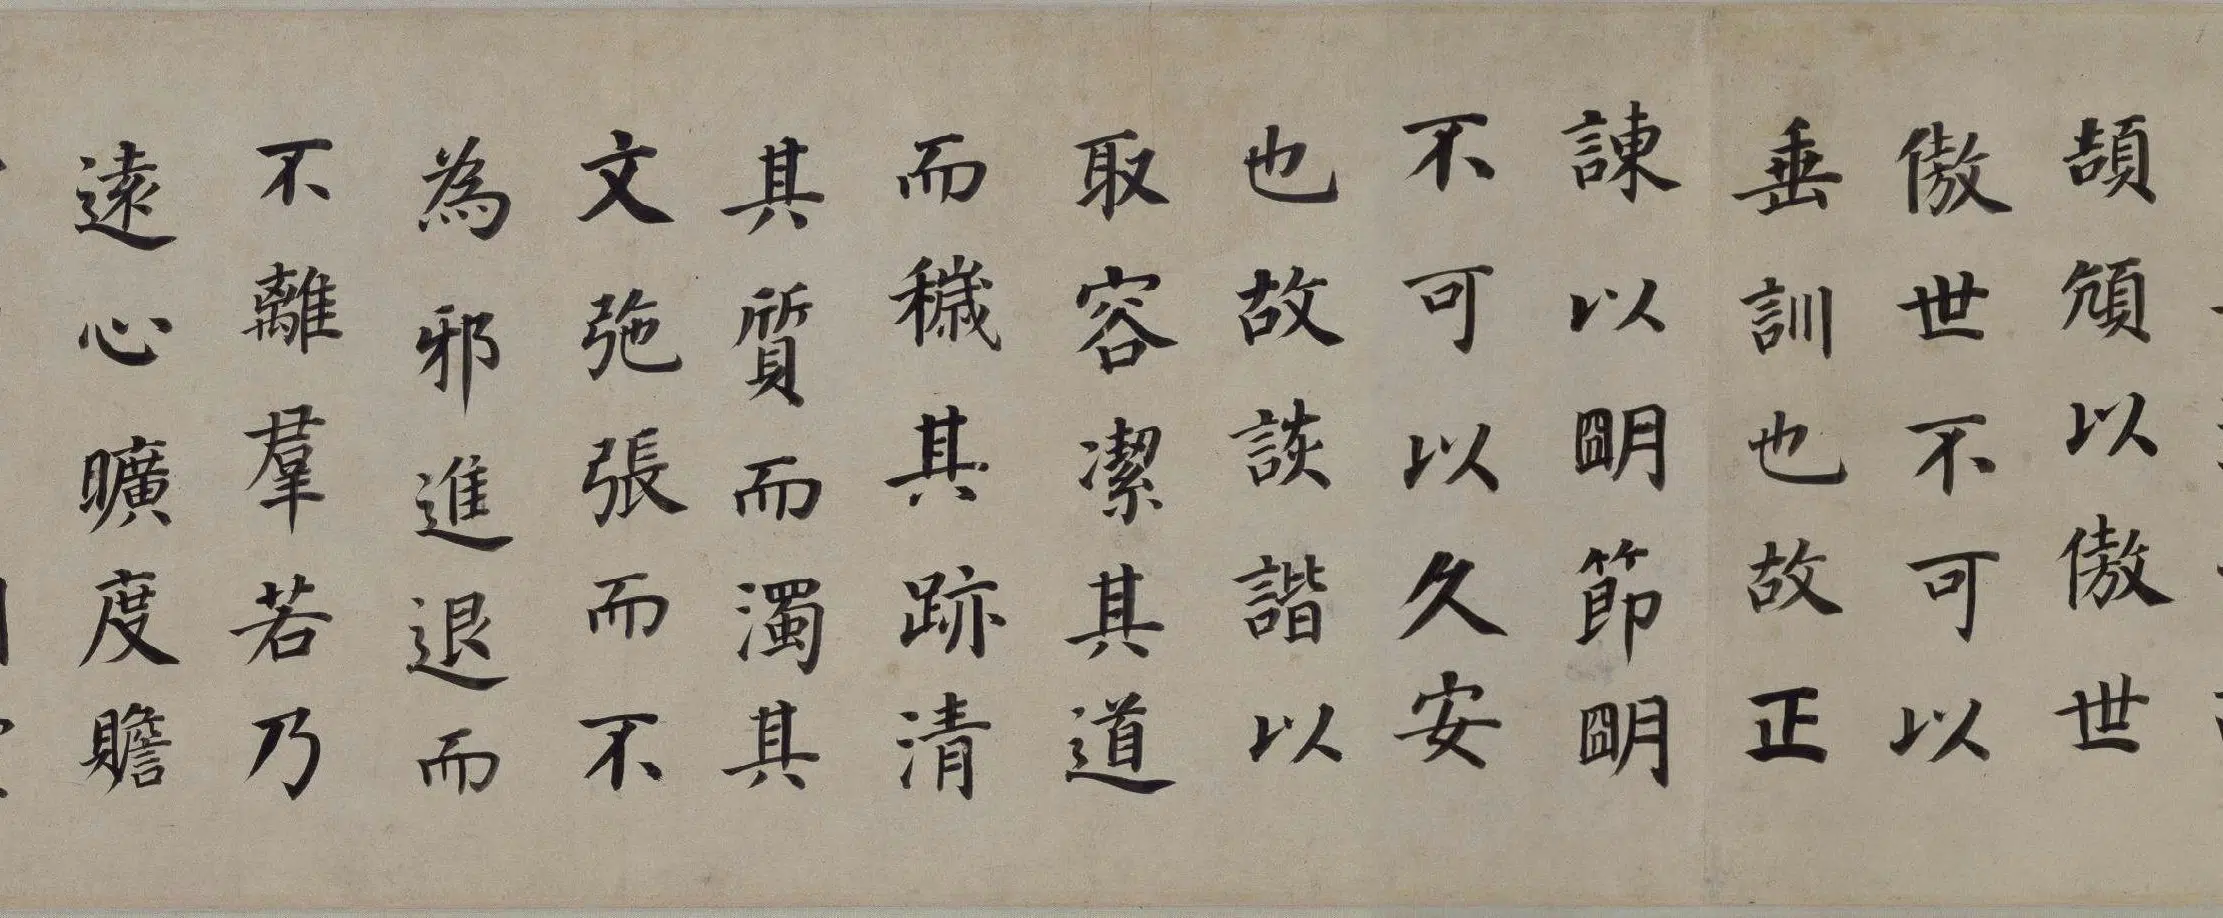 頡頏以傲世
傲世不可以
垂訓也故正
諫以明節明
不可以久安
也故詼諧以
取容潔其道
而穢其跡清
其質而濁其
文弛張而不
為邪進退而
不離羣若乃
遠心曠度贍